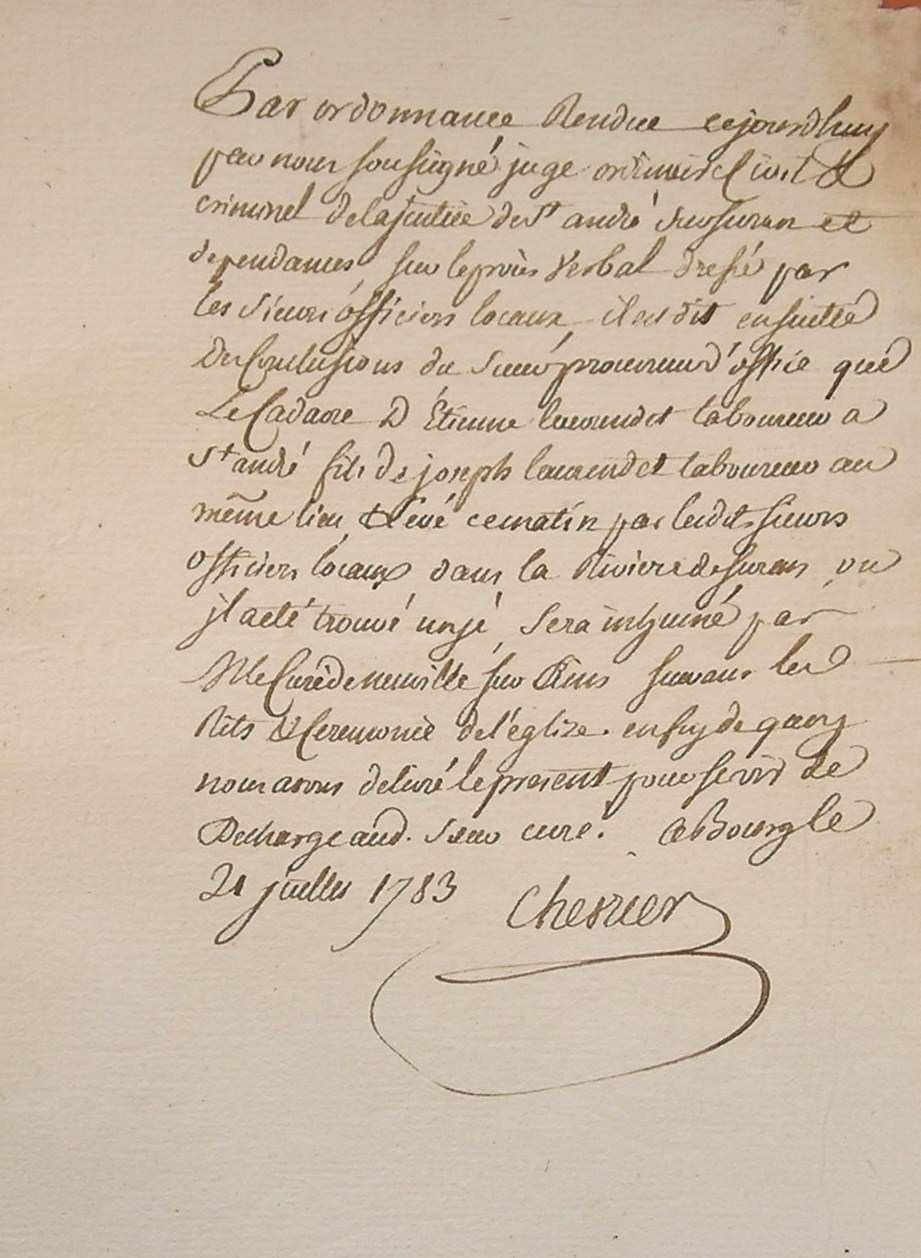 Par ordonnance Rendue cejourdhuy
par nous soussigné juge ordinaire Civil &
criminel de la justice de St andré sur suran et
dependances sur le procès verbal dressé par
les sieurs officiers locaux il est dit ensuitte
Des Conclusions du sieur procureur d'office que
Le Cadavre D'Étienne laboureur a
St andré fils de joseph laboureur au
même lieu & levé ce matin par lesdits sieurs
officiers locaux dans la Riviere de suran ou
jl a eté trouvé, sera inhumé par
Mr le Curé de neuville sur suivant les
Rits & Ceremonie de l'églize. en foy de quoy
nous avons delivré le present pour servir de
Decharge aud. sieur curé. a Bourg le
21 juillet 1783 Chesner